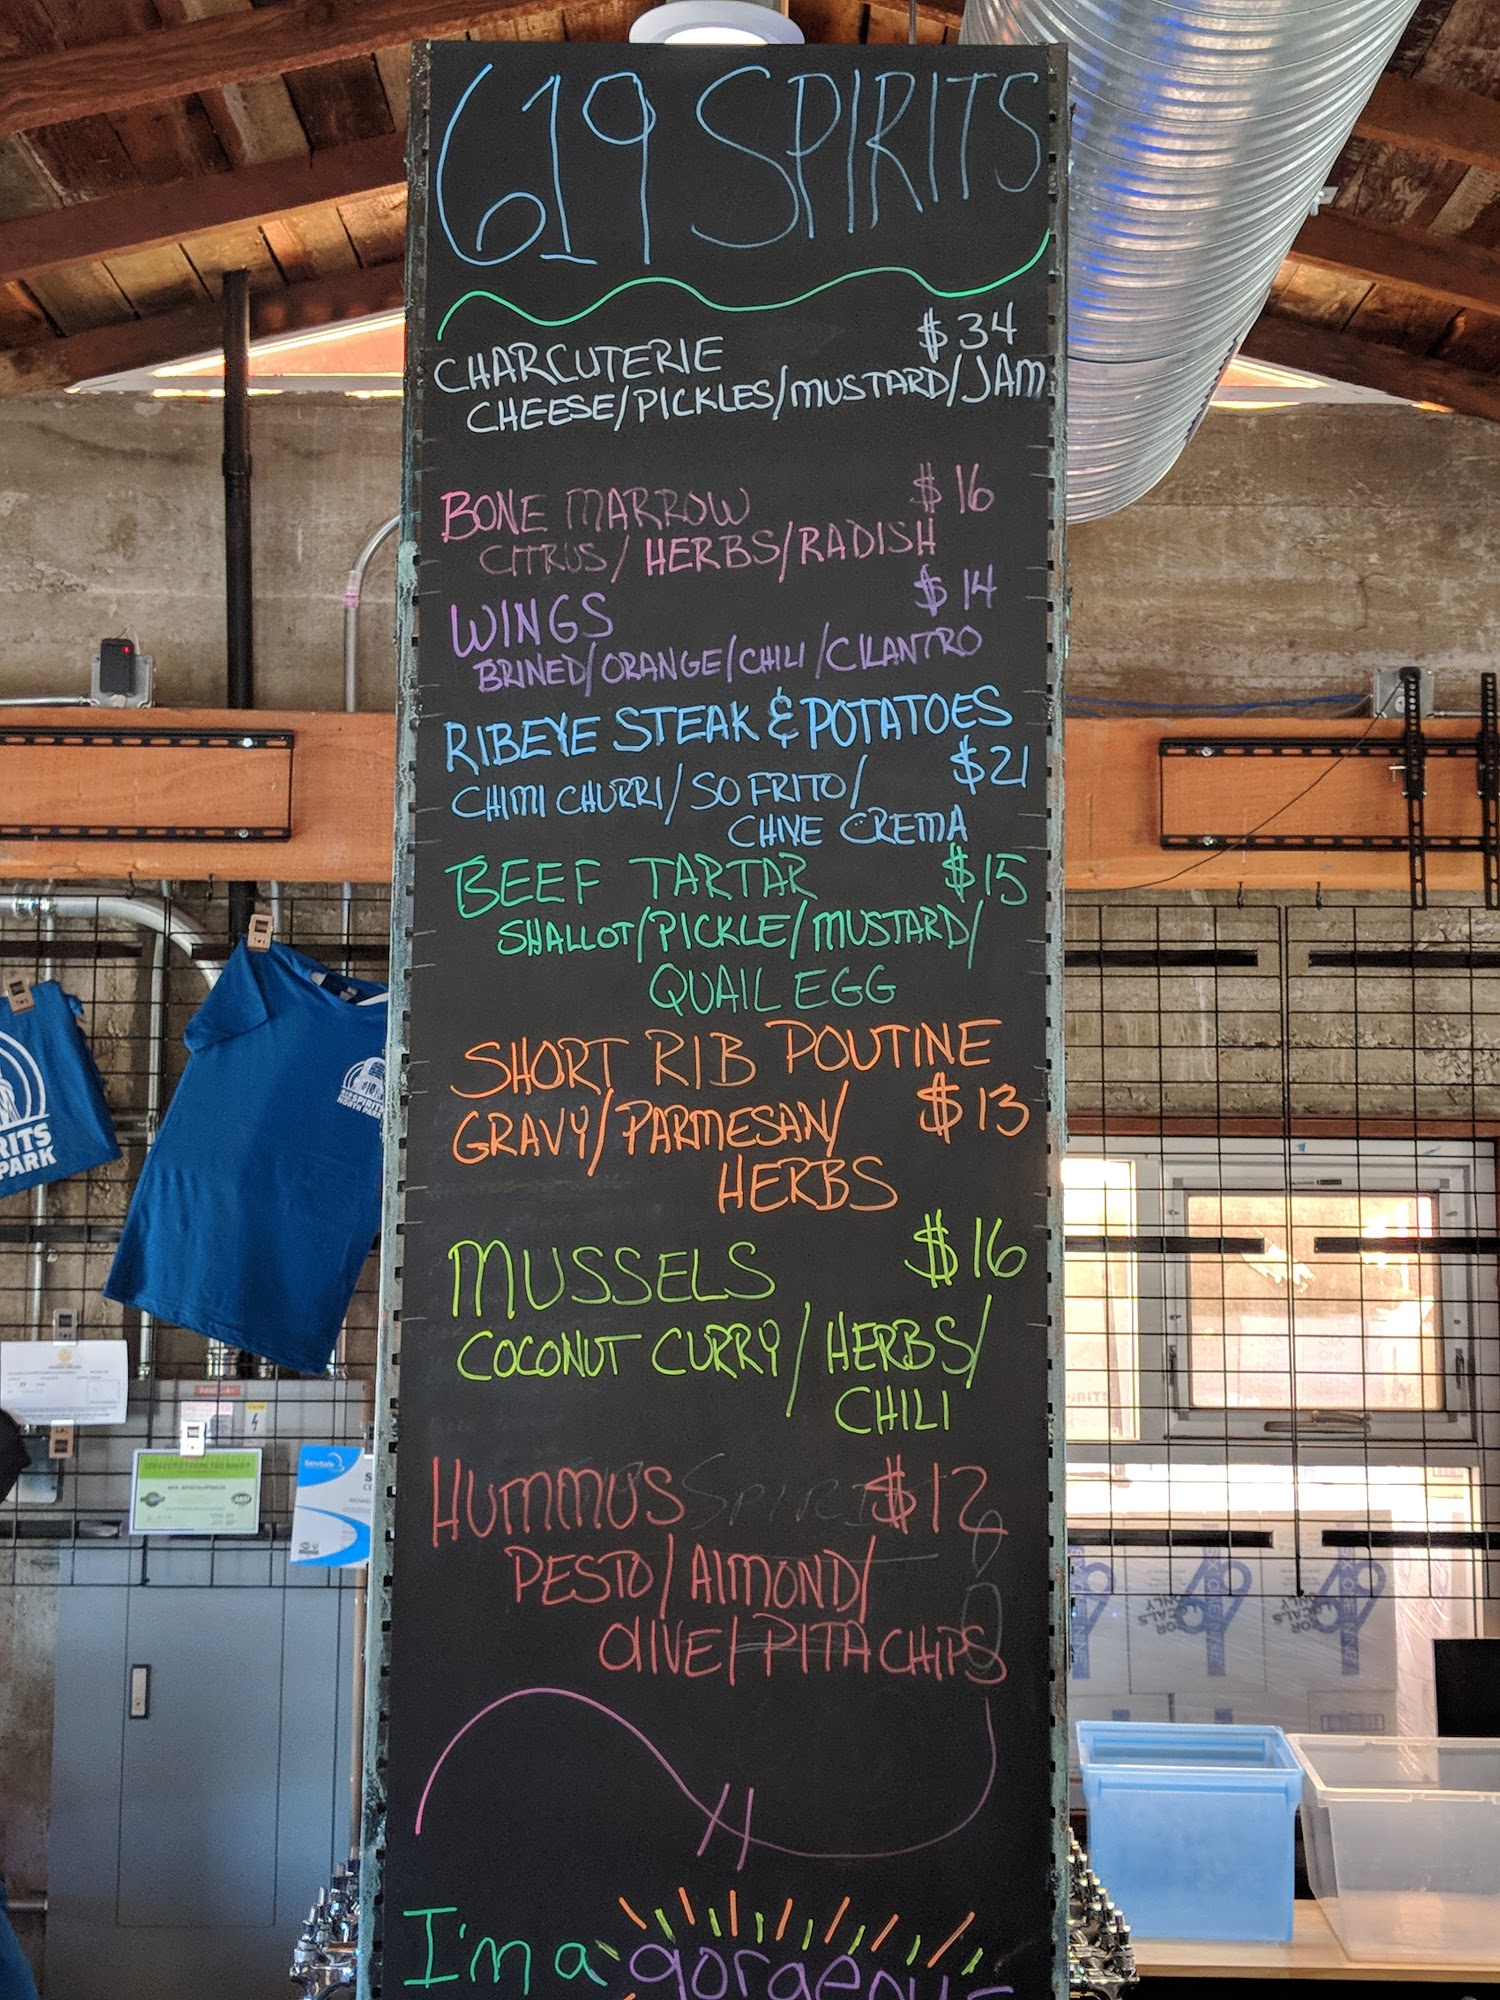 619 SPIRITS
$34
CHARCUTERIE
CHEESE/PICKLES/MUSTARD/JAM
BONE MARROW $16
CITRUS/HERBS/RADISH
WINGS $14
BRINED/ORANGE/CHILI/CILANTRO
RIBEYE STEAK & POTATOES
$21
CHIMI CHURRI/SO FRITO/
CHIVE CREMA
BEEF TARTAR $15
SHALLOT/PICKLE/MUSTARD/
QUAIL EGG
SHORT RIB POUTINE
GRAVY/PARMESAN/ $13
HERBS
MUSSELS $16
COCONUT CURRY/HERBS/
CHILI
HUMMUS $12
PESTO/AlMOND/
OlIVE/PITA CHIPS
I'm a gorgeous
RITS
PARK
619 SPIRITS
NORTH PARK
ServSafe